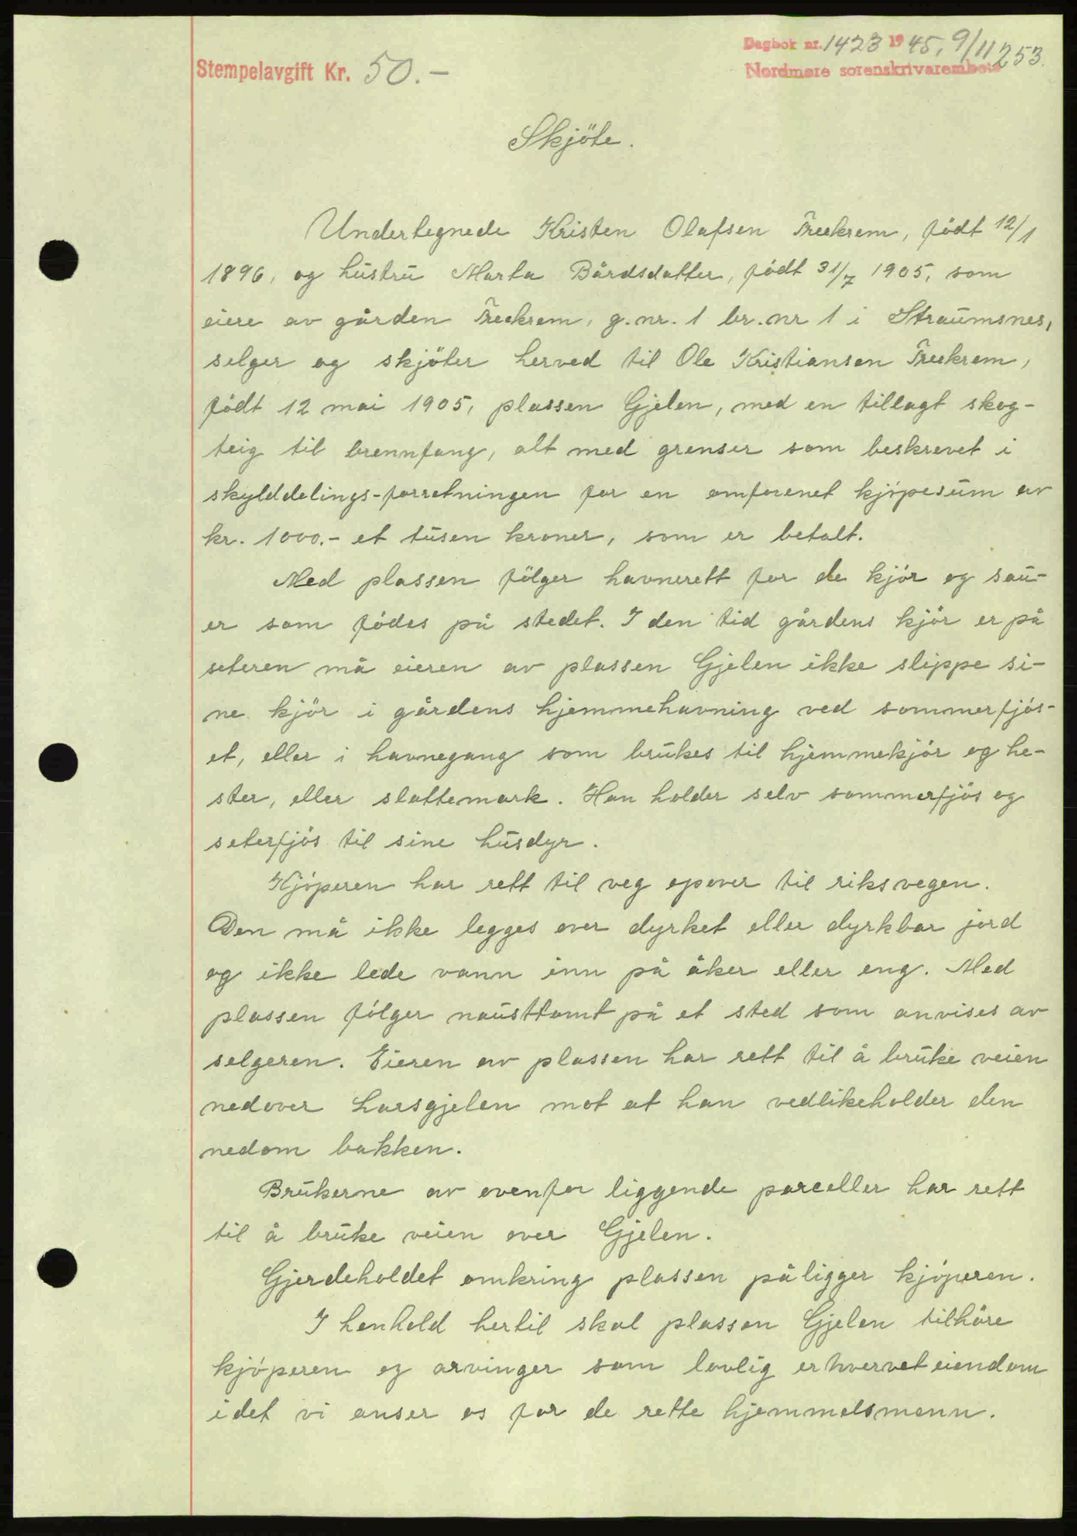 Dagbok nr. 1423 1945, 9/11 253.
Stempelavgift Kr. 50.-
Nordmøre sorenskrivarembete
Skjöte.
Undertegnede Kristen Olafsen Treekrem, født 12/1
1896, og hustru Marta Bårdsdatter, født 31/7 1905, som
eiere av gården Treekrem, g.nr. 1 br.nr 1 i Straumsnes,
selger og skjöter herved til Ole Kristiansen Treekrem,
født 12 mai 1905, plassen Gjelen, med en tillagt skog-
teig til brennfang, alt med grenser som beskrevet i
skylddelings-forretningen for en omforenet kjøpesum av
kr. 1000.- et tusen kroner, som er betalt.
Med plassen følger havnerett for de kjör og sau-
er som fødes på stedet. I den tid gårdens kjör er på
seteren må eieren av plassen Gjelen ikke slippe si-
ne kjör i gårdens hjemmehavning ved sommerfjös-
et, eller i havnegang som brukes til hjemmekjör og he-
ster, eller slattemark. Han holder selv sommerfjös og
seterfjös til sine husdyr.
Kjøperen har rett til veg opover til riksvegen.
Den må ikke legges over dyrket eller dyrkbar jord
og ikke lede vann inn på åker eller eng. Med
plassen følger nausttomt på et sted som anvises av
selgeren. Eieren av plassen har rett til å bruke veien
nedover Larsgjelen mot at han vedlikeholder den
nedom bakken.
Brukerne av ovenfor liggende parceller har rett
til å bruke veien over Gjelen.
Gjerdeholdet omkring plassen påligger kjøperen.
I henhold hertil skal plassen Gjelen tilhöre
kjøperen og arvinger som lovlig erhvervet eiendom
idet vi anser os for de rette hjemmelsmenn.